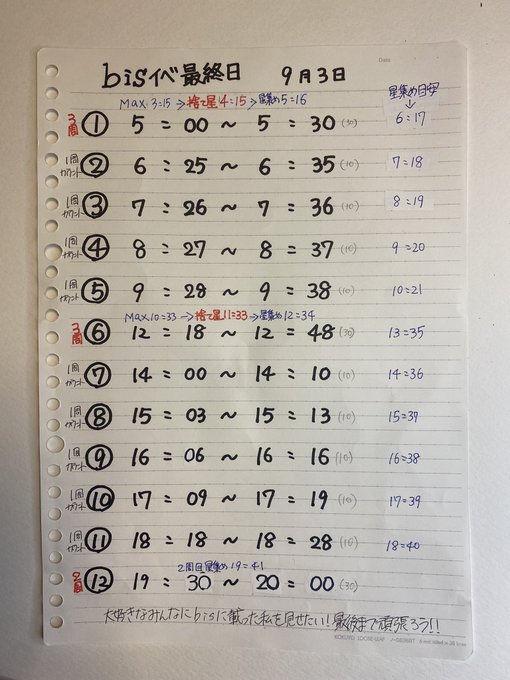 Date
bisイベ最終日 9月3日
Max.3=15→捨て星4=15→星集め5=16
星集め目安
↓
3周 ① 5=00~5=30 (30) 6=17
1周カウント ② 6=25~6=35 (10) 7=18
1周カウント ③ 7=26~7=36 (10) 8=19
1周カウント ④ 8=27~8=37 (10) 9=20
1周カウント ⑤ 9=28~9=38 (10) 10=21
Max.10=33→捨て星11=33→星集め12=34
3周 ⑥ 12=18~12=48 (30) 13=35
1周カウント ⑦ 14=00~14=10 (10) 14=36
1周カウント ⑧ 15=03~15=13 (10) 15=37
1周カウント ⑨ 16=06~16=16 (10) 16=38
1周カウント ⑩ 17=09~17=19 (10) 17=39
1周カウント ⑪ 18=18~18=28 (10) 18=40
2周目星集め19=41
2周 ⑫ 19=30~20=00 (30)
大好きなみんなにbisに載った私を見せたい!最後まで頑張ろう!!
KOKUYO LOOSE-LEAF